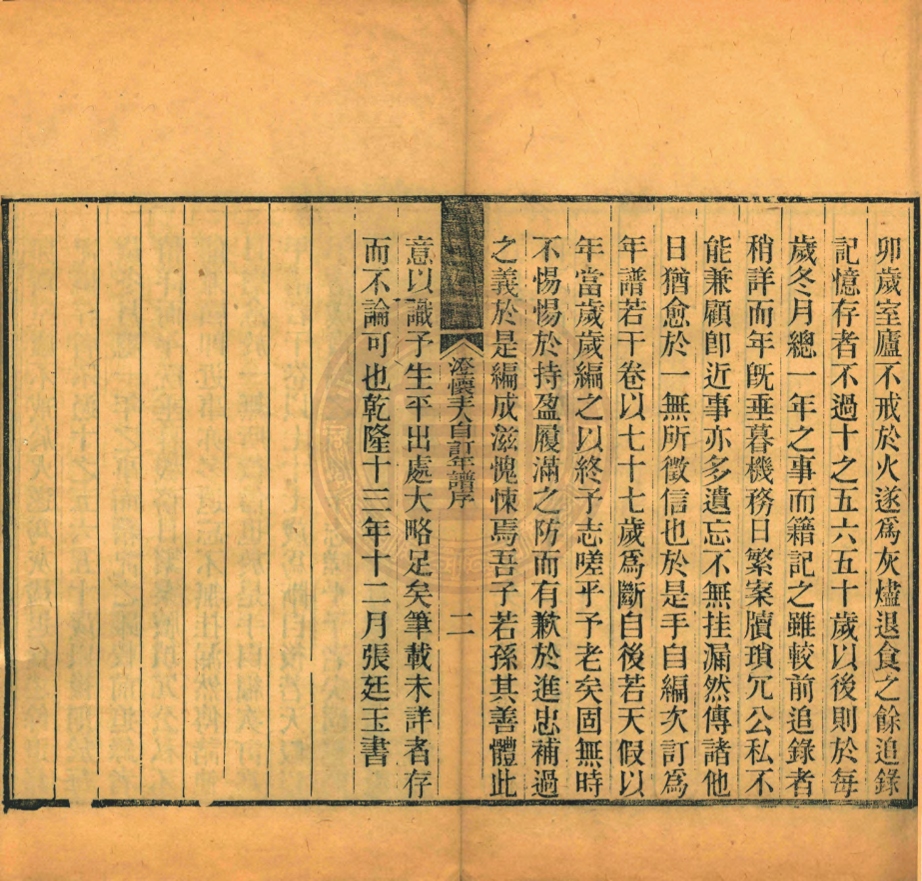 卯歲室廬不戒於火遂爲灰燼退食之餘追錄
記憶存者不過十之五六五十歲以後則於每
歲冬月總一年之事而籍記之雖較前追錄者
稍詳而年旣垂暮機務日繁案牘瑣冗公私不
能兼顧卽近事亦多遺忘不無挂漏然傳諸他
日猶愈於一無所徵信也於是手自編次訂爲
年譜若干卷以七十七歲爲斷自後若天假以
年當歲歲編之以終予志嗟乎予老矣固無時
不惕惕於持盈履滿之防而有歉於進忠補過
之義於是編成滋愧悚焉吾子若孫其善體此
澄懷主人自訂年譜序 二
意以識予生平出處大略足矣筆載未詳者存
而不論可也乾隆十三年十二月張廷玉書